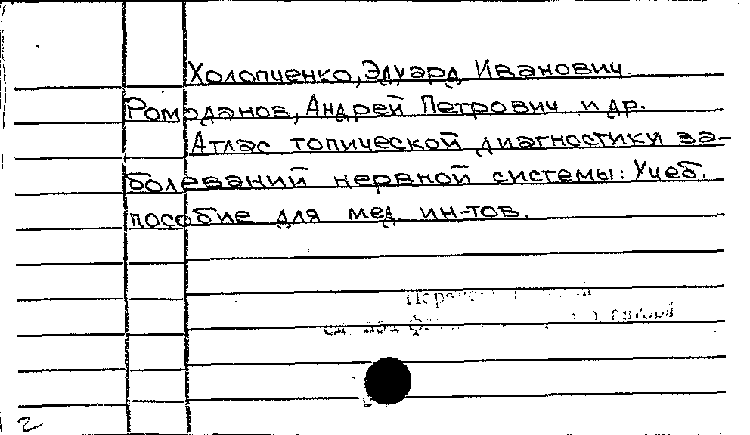 Холопченко, Эдуард Иванович
Ромоданов, Андрей Петрович и др.
Атлас топической диагностики за-
болеваний нервной системы: Учеб.
пособие для мед. ин-тов.
2